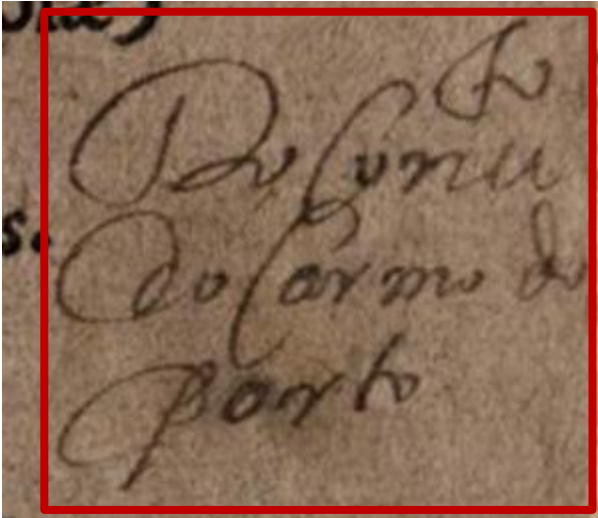 Do Conu.to
do Carmo do
Porto